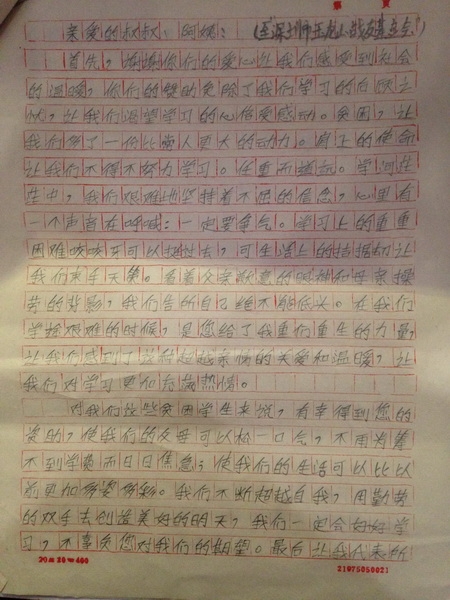 亲爱的叔叔、阿姨：
首先，谢谢你们的爱心让我们感受到社会
的温暖，你们的帮助免除了我们学习的后顾之
忧，让我们渴望学习的心倍受感动。贫困，让
我们多了一份比常人更大的动力。肩上的使命
让我们不得不努力学习。任重而道远。学海茫
茫中，我们艰难地坚持着不屈的信念，心里有
一个声音在呐喊：一定要争气。学习上的重重
困难咬咬牙可以挺过去，可生活上的拮据却让
我们束手无策。看着父亲歉意的眼神和母亲操
劳的背影，我们告的自己绝不能低头。在我们
学校艰难的时候，是您给了我们重生的力量，
让我们感到了这份超越亲情的关爱和温暖，让
我们对学习更加充满热情。
对我们这些贫困学生来说，有幸得到您的
资助，使我们的父母可以松一口气，不用为筹
不到学费而日日焦急；使我们的生活可以比以
前更加多姿多彩。我们不断超越自我，用勤劳
的双手去创造美好的明天，我们一定会好好学
习，不辜负您对我们的期望。最后让我代表所
20×20=400
21075050021